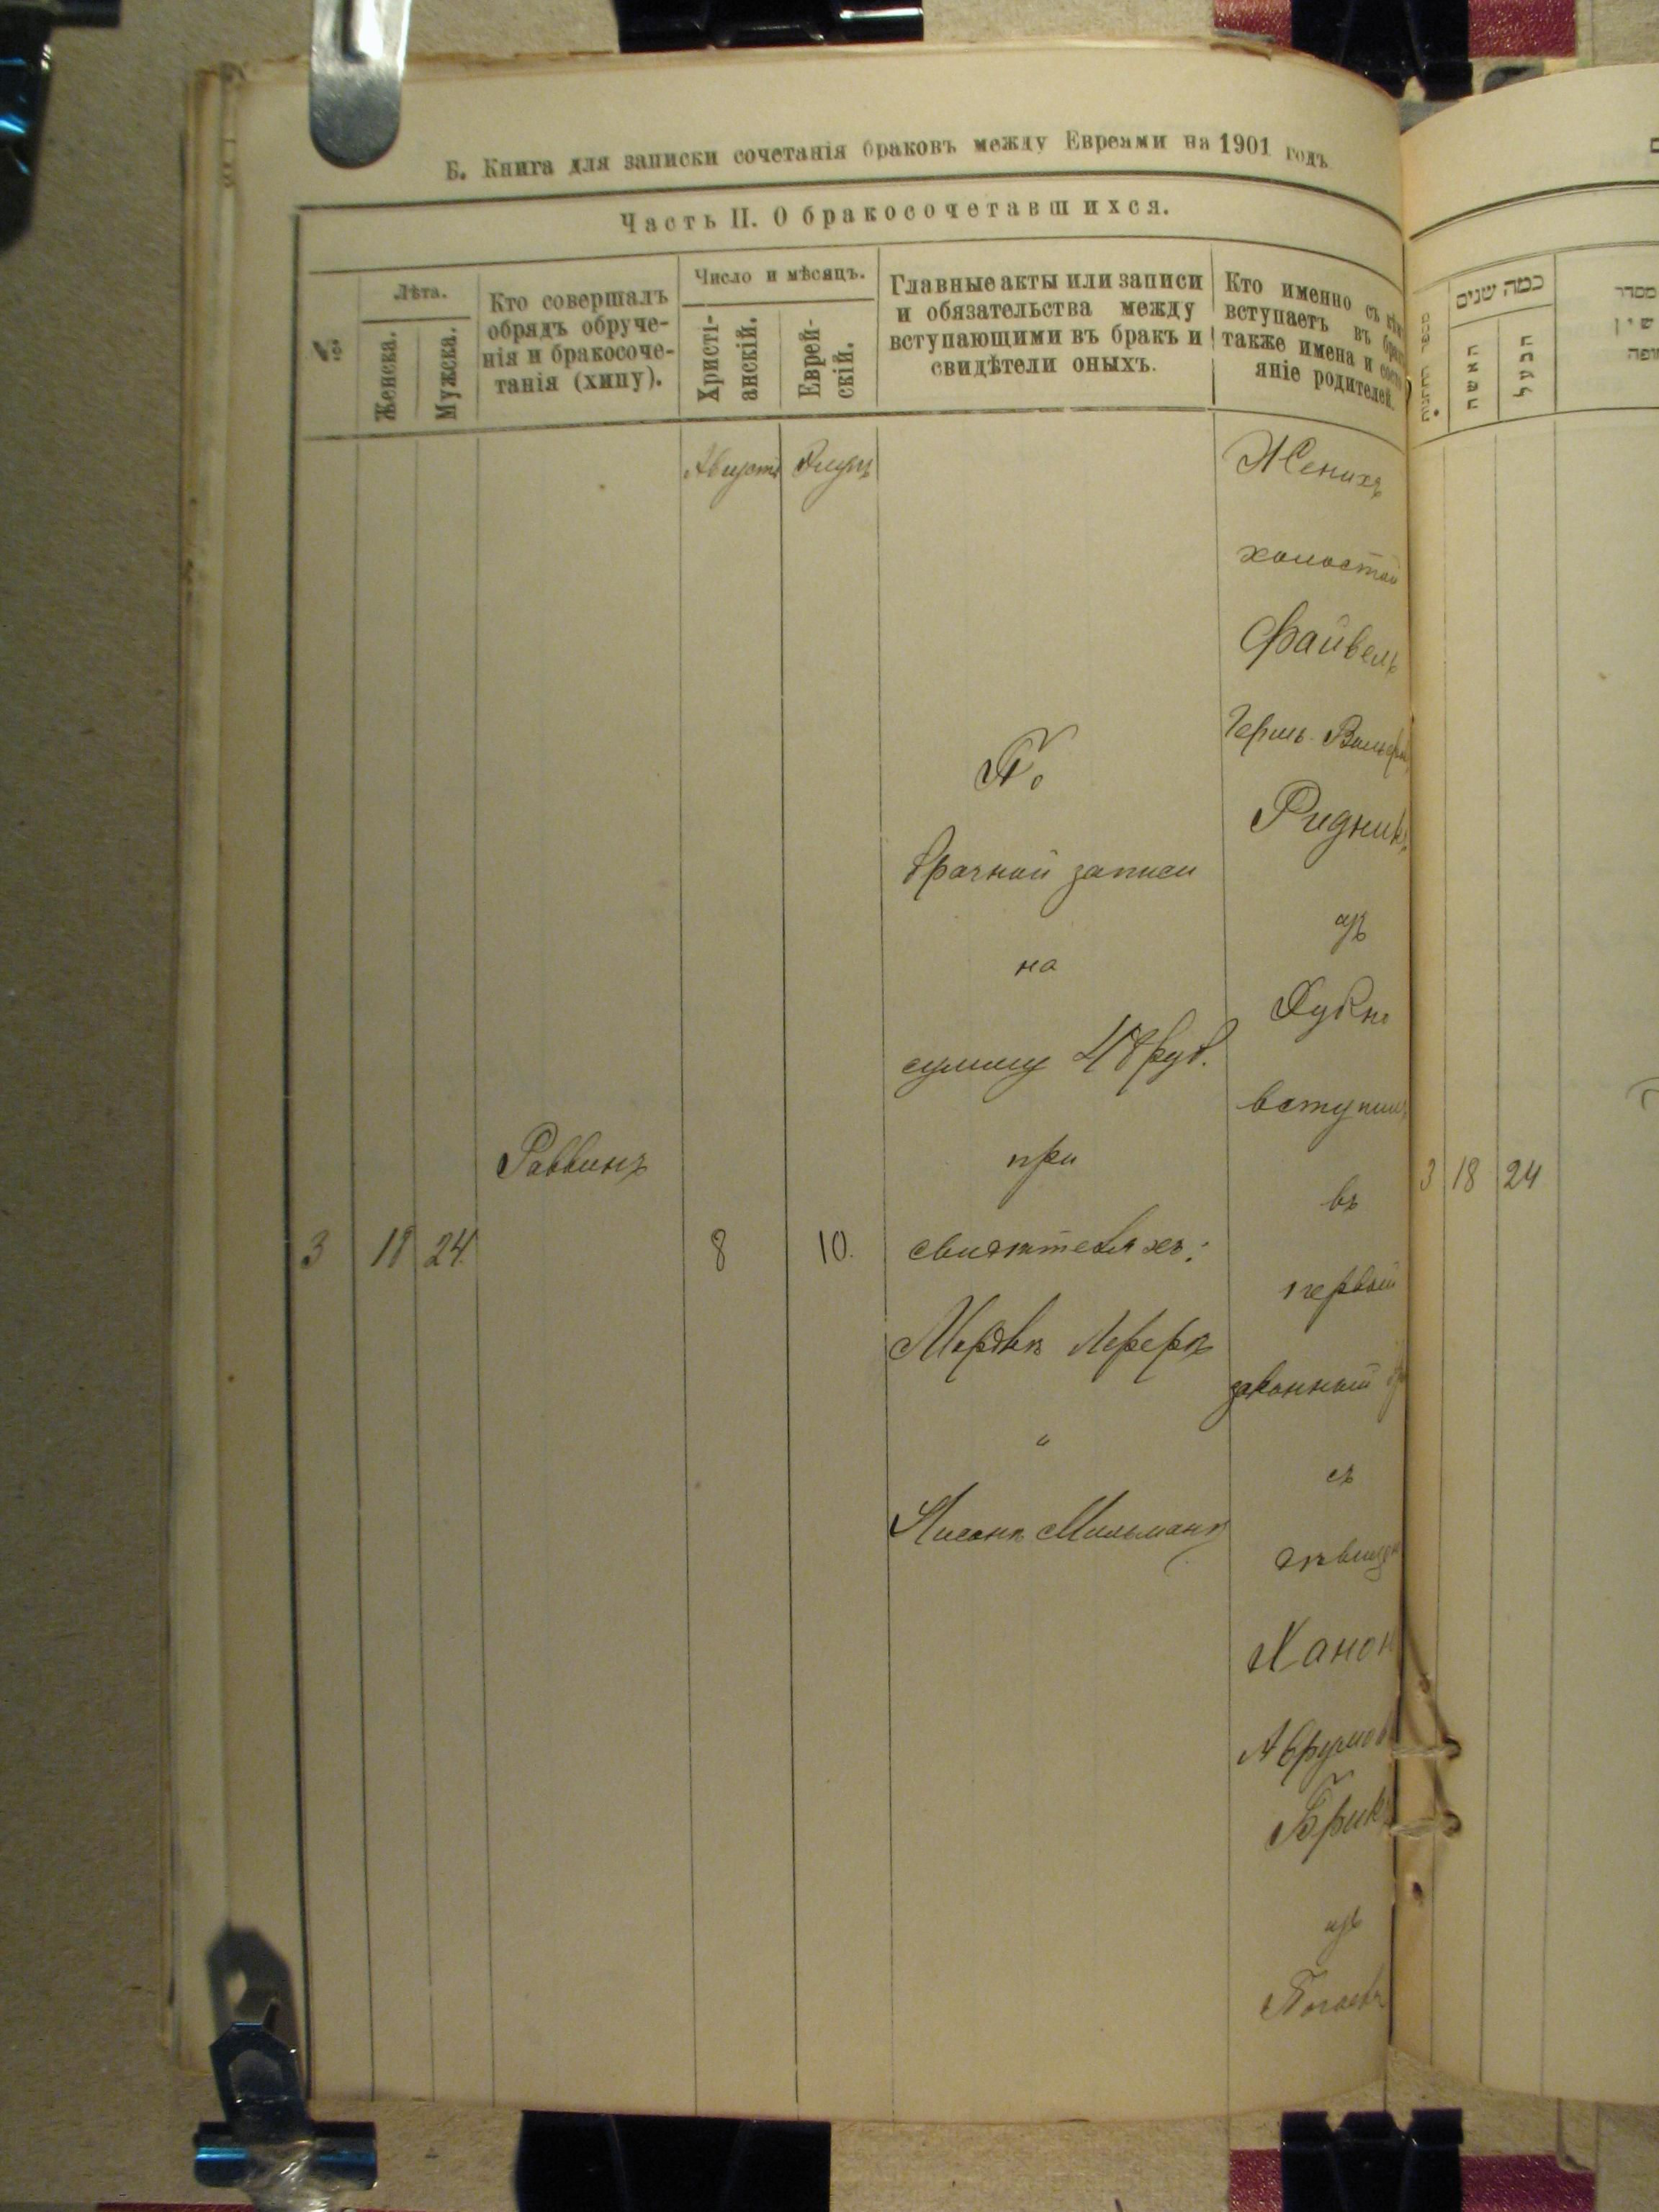 Б. Книга для записки сочетанія браковъ между Евреями на 1901 годъ
Часть II. О бракосочетавшихся.
№
Лѣта.
Женска.
Мужска.
Кто совершалъ
обрядъ обруче-
нія и бракосоче-
танія (хипу).
Число и мѣсяцъ.
Христі-
анскій.
Еврей-
скій.
Главные акты или записи
и обязательства между
вступающими въ бракъ и
свидѣтели оныхъ.
Кто именно съ кѣмъ
вступаетъ въ бракъ
также имена и состо
яніе родителей.
3
18
24.
Раввинъ
Августъ
8
10.
По
брачной записи
на
сумму 48 руб.
при
свидѣтеляхъ:
Мордко Лереръ
и
Нисонъ Мильманъ
Женихъ
холостой
Файвель
Гершъ-Вольфов
Ридникъ
изъ
Дубно
вступилъ
въ
первый
законный бр
съ
дѣвицею
Ханою
Аврумов
Брикъ
изъ
כמה שנים
האשה
הבעל
3 18 24